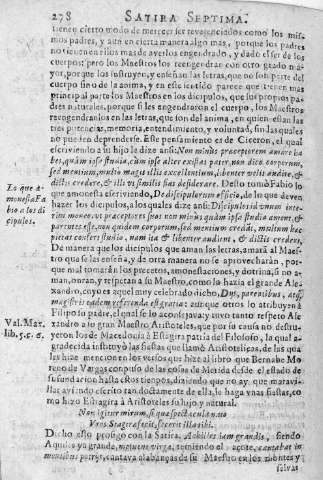 278 SATIRA SEPTIMA.
tienen cierto modo de merecer ser reverenciados como los mis-
mos padres, y aun en cierta manera algo mas, porque los padres
no tienen en si los mas de averlos engendrado, y dado el ser de los
cuerpos: pero los Maestros los reengendran con otro grado ma-
yor, porque los instruyen, y enseñan las letras, que no son parte del
cuerpo sino de la anima, y en este cierto parece que tienen mas
principal parte los Maestros en los dicipulos, que sus propios pa-
dres naturales, porque si les engendraron el cuerpo, los Maestros
reengendrarlos en las letras, que son del anima, en quien estan las
tres potencias, memoria, entendimiento, y voluntad, sin las quales
no pueden deprenderse. Este pensamiento es de Ciceron, el qual
escriviendo a su hijo le dize ansi: Non minùs praeceptorem amare de-
bes, quàm ipsa studia, cum ipse alter existat pater, non dico corporum,
sed mentium, multò magis illis excellentium, libenter velis audire, &
dictis credere, & illi vt similis sias desiderare. Desto tomò Fabio lo
que amonesta escriviendo, De discipulorum officio, de lo que deven
hazer los dicipulos, a los quales dize ansi: Discipulos id vnum inte-
rim moneo, vt praeceptores suos non minùs quàm ipsa studia ament, &
parentes esse, non quidem corporum, sed mentium credat, multum hac
pietas confert studio, nam ita & libenter audient, & dictis credent,
De manera que los dicipulos que aman las letras, amarà al Maes-
tro que se las enseña, y de otra manera no se aprovecharàn, por-
que mal tomaràn los preceptos, amonestaciones, y dotrina, si no a-
man, onran, y respetan a su Maestro, como lo hazia el grande Ale-
xandro, cuyo es aquel muy celebrado dicho, Dijs, parentibus, atq;
magistris eadem esse referenda est gratia: aunque otros lo atribuyen à
Filipo su padre, el qual se lo aconsejava, y tuvo tanto respeto Ale-
xandro a lo gran Maestro Aristoteles, que por su causa no destru-
yeron los de Macedonia à Estagira patria del Filosofo, la qual a-
gradecida instituyò las fiestas que llamò Aristotelicas, de las qua-
les hize mencion en los versos que hize al libro que Bernabe Mo-
reno de Vargas compuso de las cosas de Merida desde el estado de
su fundacion hasta estos tiempos, diziendo que no ay que maravi-
llar aviendo escrito tan doctamente de ella, le haga vnas fiestas, co-
mo hizo Estagira à Aristoteles su hijo, y natural.
Non igitur mirum, si qua spectacula nuno
Vrens Stagira fecit, fecerit illa tibi.
Dicho esto prosigo con la Satira, Achilles iam grandis, siendo
Aquiles ya grande, metuens virga, temiendo el açote, cantabat in
montibus patrijs, cantava alabanças de su Maestro en los montes y
selvas
Lo que a-
monesta Fa-
bio a los di-
cipulos.
Val. Max.
lib. 5. c. 6.